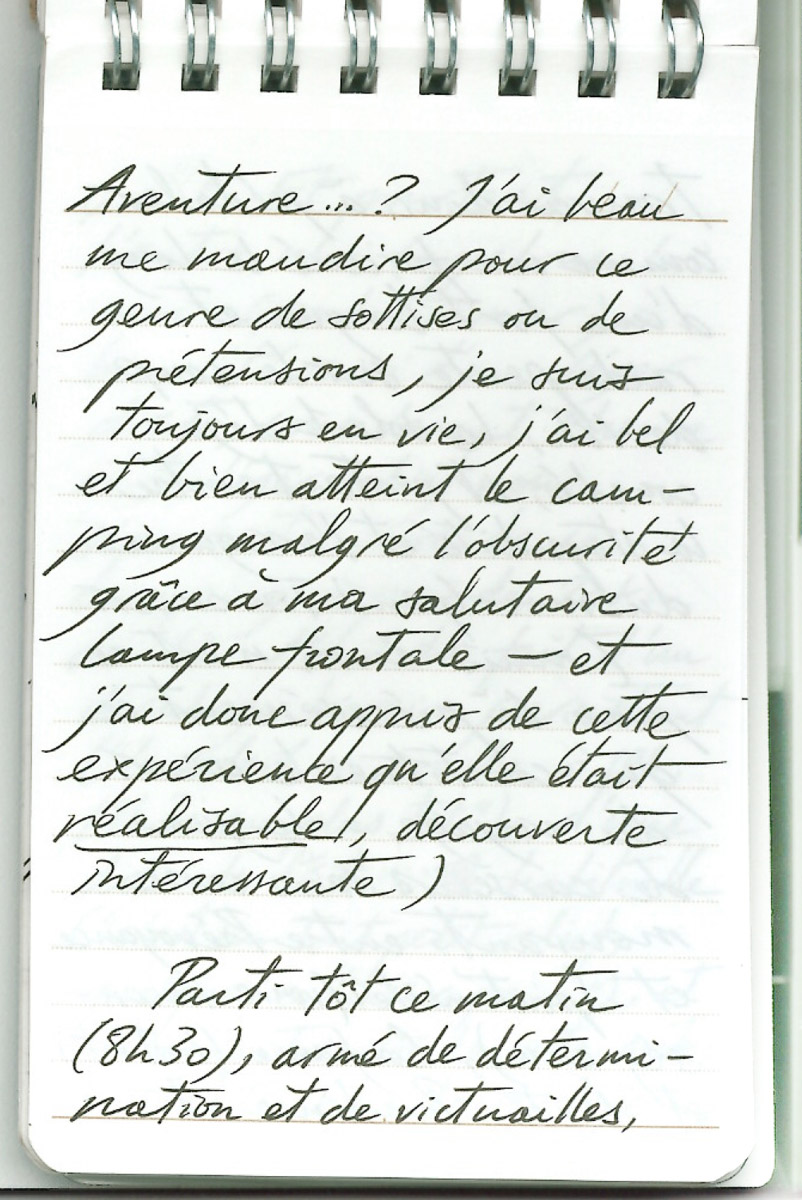 Aventure...? J'ai beau
me maudire pour ce
genre de sottises ou de
prétensions, je suis
toujours en vie, j'ai bel
et bien atteint le cam-
ping malgré l'obscurité
grâce à ma salutaire
lampe frontale – et
j'ai donc appris de cette
expérience qu'elle était
réalisable, découverte
intéressante)
Parti tôt ce matin
(8h30), armé de détermi-
nation et de victuailles,